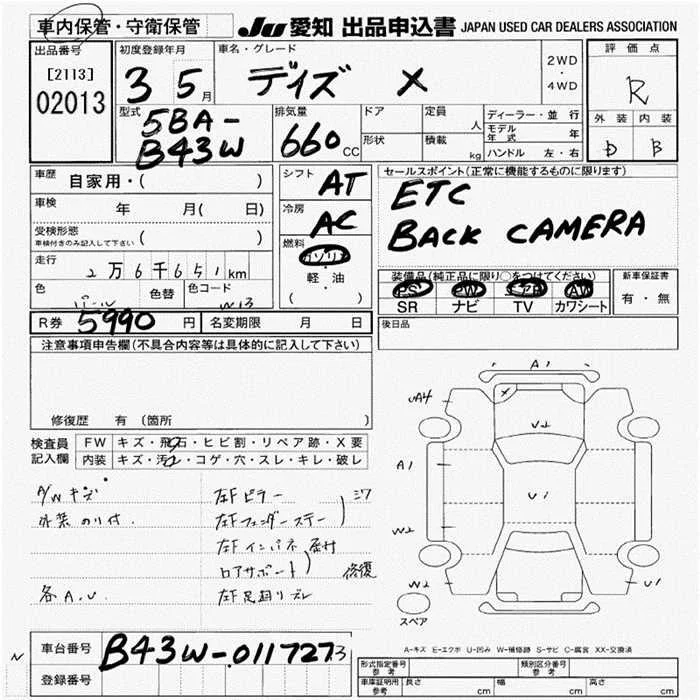 車内保管・守衛保管
JU 愛知 出品申込書 JAPAN USED CAR DEALERS ASSOCIATION
出品番号 初度登録年月 車名・グレード 評価点
[2113]
02013
3 5月 デイズ X
2WD
・
4WD
R
型式 排気量 ドア 定員 人 ディーラー・並行 外装 内装
5BA-
B43W
660 CC
形状 積載 kg
モデル年式 年
ハンドル 左・右
D B
車歴 自家用・( )
シフト AT
セールスポイント(正常に機能するものに限ります)
ETC
BACK CAMERA
車検 年 月( 日)
冷房 AC
受検形態
車検付きのみ記入して下さい ( )
燃料 ガソリン
軽・油
( ・ )
走行 2万6千651km
色 パール 色替 色コード W13
装備品(純正品に限り○をつけてください) 新車保証書
PS PW エアB AW
SR ナビ TV カワシート
有・無
R券 5990円 名変期限 月 日
後日品
注意事項申告欄(不具合内容等は具体的に記入して下さい)
修復歴 有 (箇所 )
検査員記入欄
FW キズ・飛石・ヒビ割・リペア跡・X要
内装 キズ・汚・コゲ・穴・スレ・キレ・破レ
A/W キズ 左Fピラー
外装 のり付 左Fフェンダーステー シワ
左Fインパネ
ロアサポート 修復
各A.U.
A1
A1
U2
U1
W2
W2
U1
スペア
A-キズ E-エクボ U-凹み W-補修跡 S-サビ C-腐食 XX-交換済
車台番号 B43W-0117273
登録番号
N
形式指定番号 参考 類別区分番号 参考
車庫証明用 参考 長さ cm 幅 cm 高さ cm